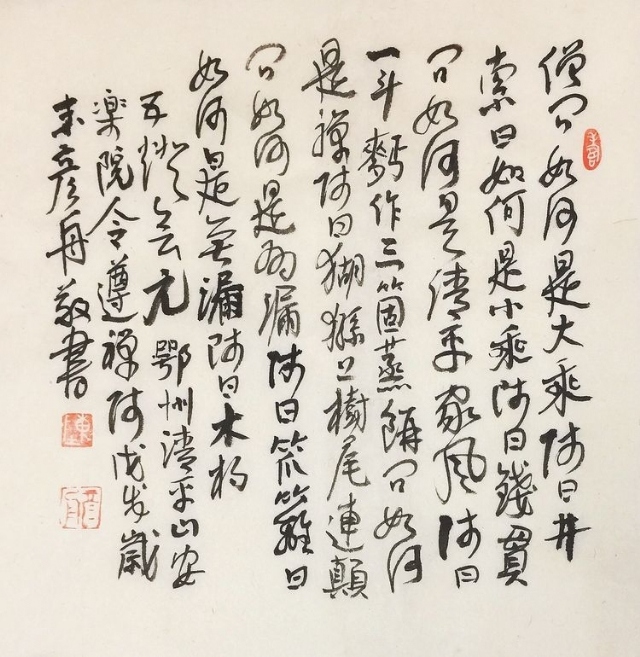 僧問如何是大乘師曰井
索曰如何是小乘師曰錢貫
問如何是清平家風師曰
一斗麫作三箇蒸餅問如何
是禪師曰猢猻上樹尾連顛
問如何是有漏師曰笊籬曰
如何是無漏師曰木杓
五燈會元 鄂州清平山安
楽院令遵禪師戊戌歲
彦舟敬書